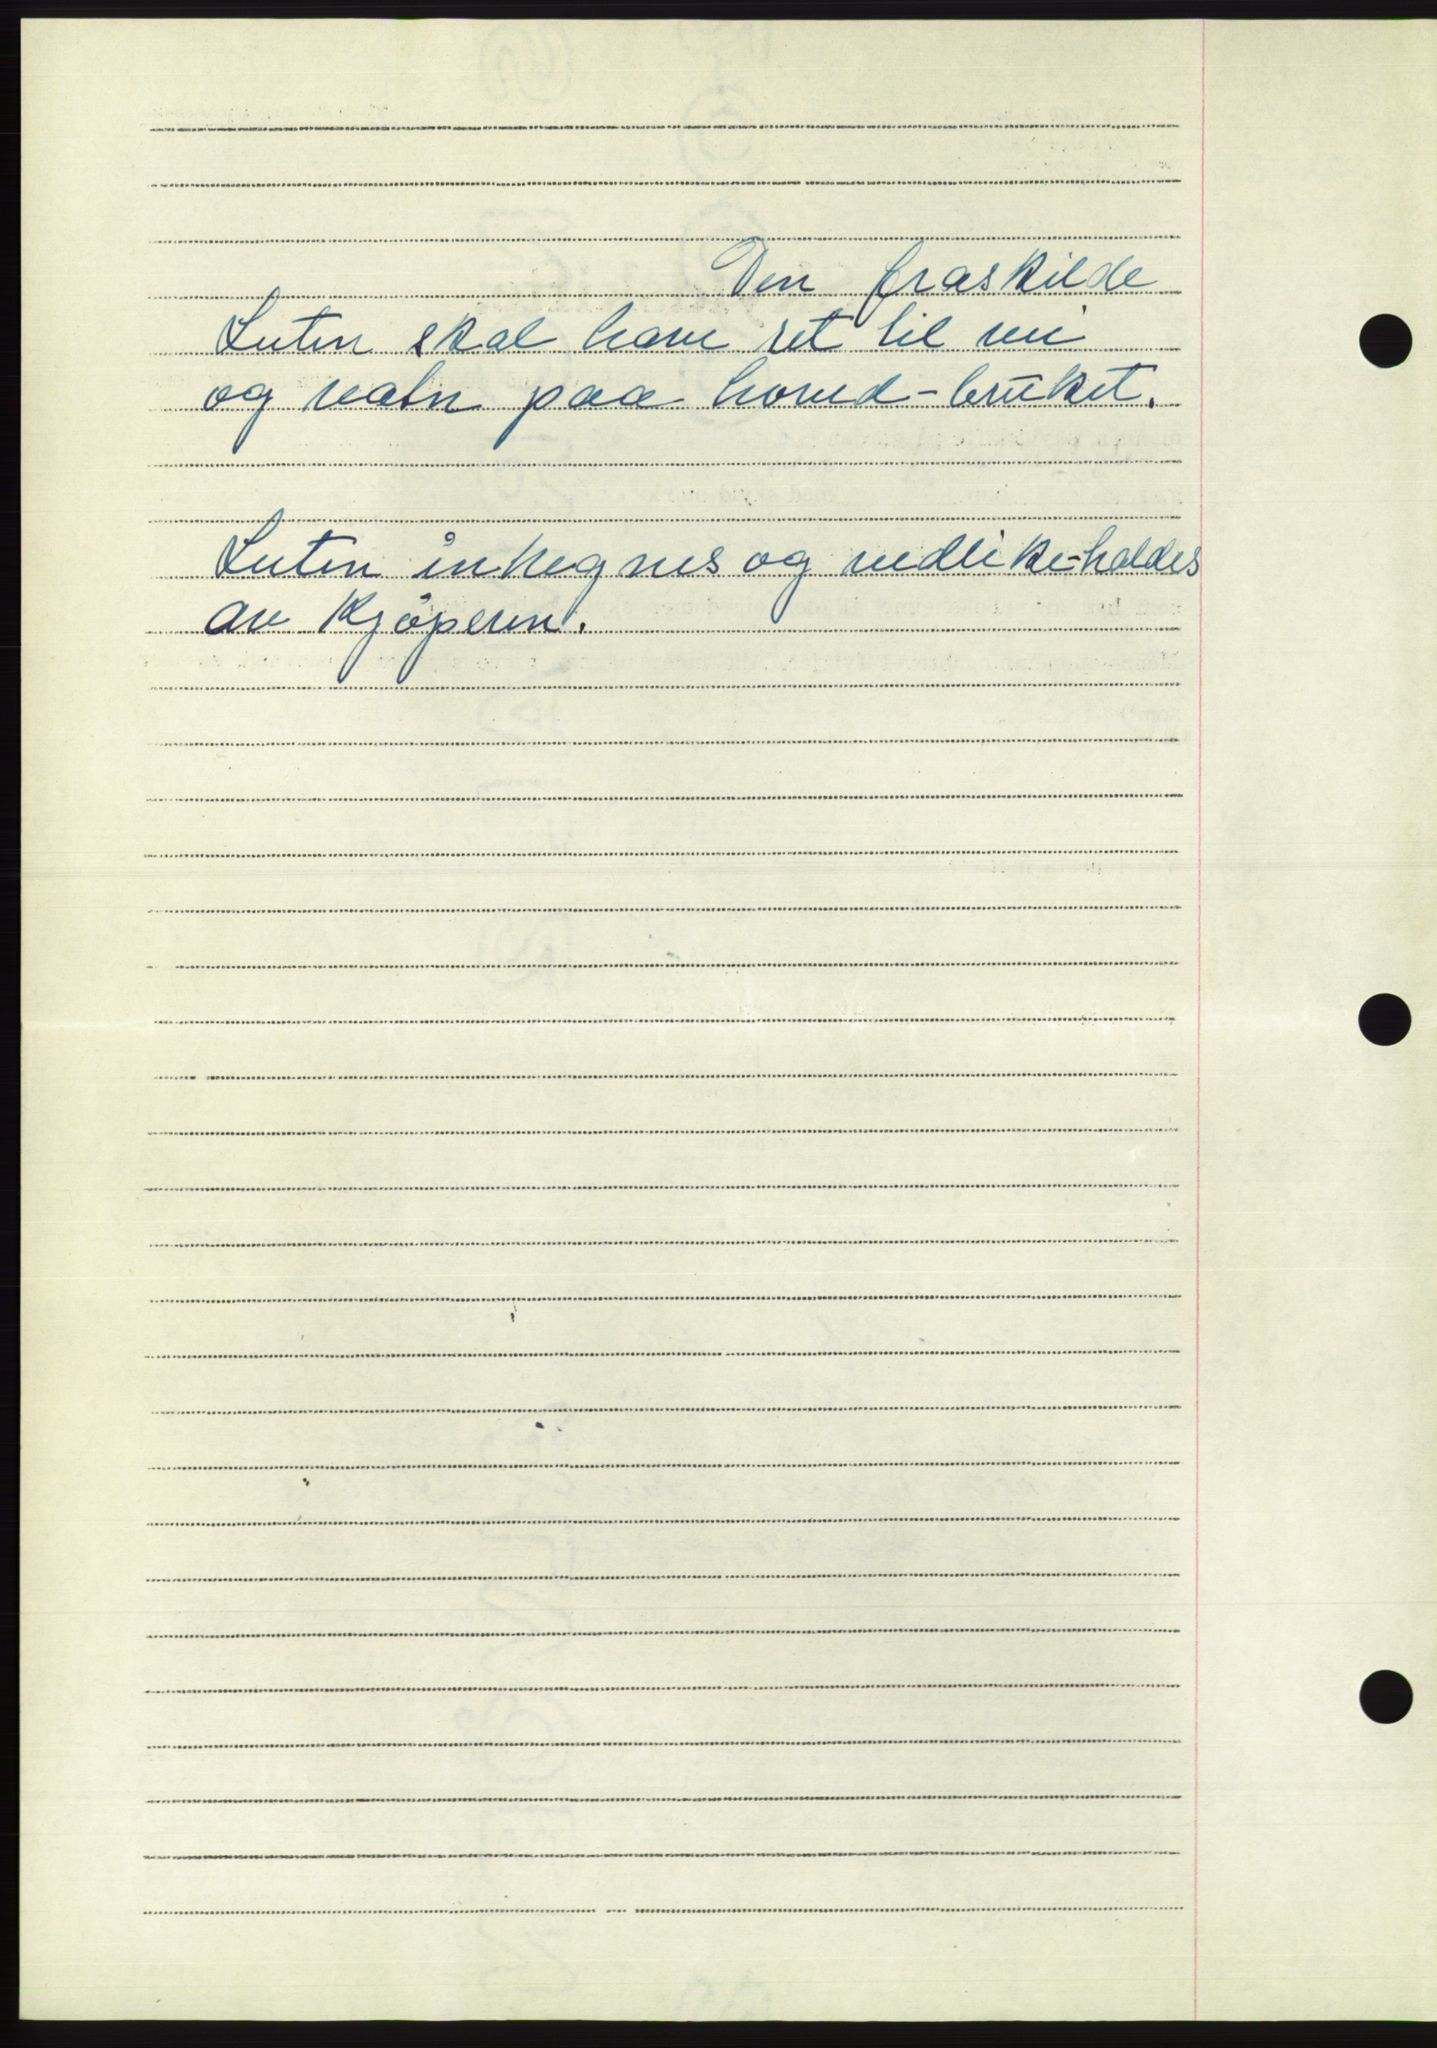 Den fraskilde
Luten skal have ret til vei
og vatn paa hoved-bruket.
Luten inhegnes og vedlike-holdes
av Kjöperen.